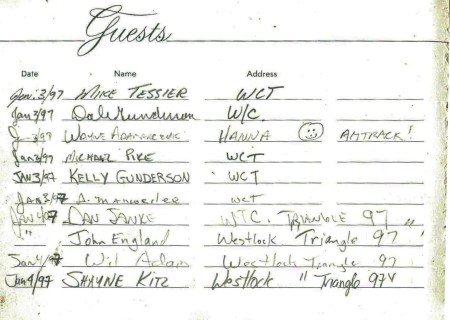 Guests
Date Name Address
Jan. 3/97 MIKE TESSIER WCT
Jan 3/97 Dale Gunderson W/C.
J 3/97 WAYNE HANNA AMTRACK!
Jan 3/97 MICHAEL PIKE WCT
JAN 3/97 KELLY GUNDERSON WCT
Jan 3/97 A. WCT
Jan 4/97 DAN JANKE WTC. TRIANGLE 97 "
" John England Westlock Triangle 97 '
Jan 4/97 Wil Adam Westlock Triangle 97
Jan 4/97 SHAYNE KITZ Westlock " Triangle 97